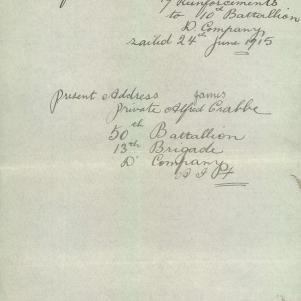 Reinforcements
to 10th Battallion
D. Company
sailed 24th June 1915
Present Address James
Private Alfred Crabbe
50th Battallion
13th Brigade
D Company